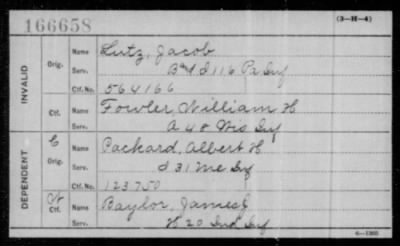 166658
(3-H-4)
INVALID
Orig.
Name Lutz, Jacob
Serv. I 116 Pa Inf
Ctf. No. 564166
Ctf.
Name Fowler William H
Serv. A 48 Wis Inf
DEPENDENT
C Orig.
Name Packard, Albert H
Serv. I 31 Me Inf
Ctf. No. 123750
Ctf.
Name Baylor, James
Serv. H 20 Ind Inf